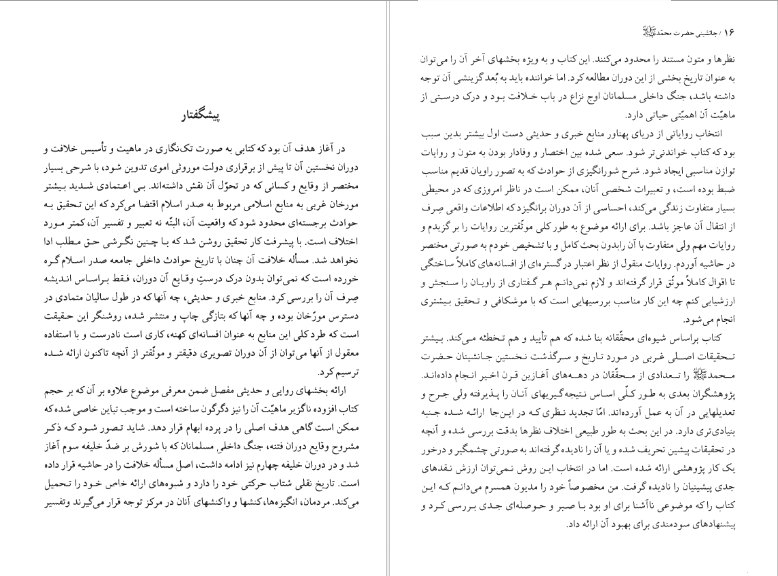 پیشگفتار
در آغاز هدف آن بود که کتابی به صورت تک‌نگاری در ماهیت و تأسیس خلافت و
دوران نخستین آن تا پیش از برقراری دولت موروثی اموی تدوین شود، با شرحی بسیار
مختصر از وقایع و کسانی که در تحوّل آن نقش داشته‌اند. بی اعتمادی شدید بیشتر
مورخان غربی به منابع اسلامی مربوط به صدر اسلام اقتضا می‌کرد که این تحقیق به
حوادث برجسته‌ای محدود شود که واقعیت آن، البتّه نه تعبیر و تفسیر آن، کمتر مورد
اختلاف است. با پیشرفت کار تحقیق روشن شد که با چنین نگرشی حق مطلب ادا
نخواهد شد. مسأله خلافت آن چنان با تاریخ حوادث داخلی جامعه صدر اسلام گره
خورده است که نمی‌توان بدون درک درستِ وقایع آن دوران، فقط براساس اندیشه
صِرف آن را بررسی کرد. منابع خبری و حدیثی، چه آنها که در طول سالیان متمادی در
دسترس مورّخان بوده و چه آنها که بتازگی چاپ و منتشر شده، روشنگر این حقیقت
است که طرد کلی این منابع به عنوان افسانه‌ای کهنه، کاری است نادرست و با استفاده
معقول از آنها می‌توان از آن دوران تصویری دقیقتر و موثّقتر از آنچه تاکنون ارائه شده
ترسیم کرد.
ارائه بخشهای روایی و حدیثی مفصل ضمن معرفی موضوع علاوه بر آن که بر حجم
کتاب افزوده ناگزیر ماهیّت آن را نیز دگرگون ساخته است و موجب تباین خاصی شده که
ممکن است گاهی هدف اصلی را در پرده ابهام قرار دهد. شاید تصور شود که ذکر
مشروح وقایع دوران فتنه، جنگ داخلی مسلمانان که با شورش بر ضدّ خلیفه سوم آغاز
شد و در دوران خلیفه چهارم نیز ادامه داشت، اصل مسأله خلافت را در حاشیه قرار داده
است. تاریخ نقلی شتاب حرکتی خود را دارد و شیوه‌های ارائه خاص خود را تحمیل
می‌کند. مردمان، انگیزه‌ها، کنشها و واکنشهای آنان در مرکز توجه قرار می‌گیرند وتفسیر
۱۶ / جانشینی حضرت محمّدﷺ
نظرها و متون مستند را محدود می‌کنند. این کتاب و به ویژه بخشهای آخر آن را می‌توان
به عنوان تاریخ بخشی از این دوران مطالعه کرد. اما خواننده باید به بُعد گزینشی آن توجه
داشته باشد، جنگ داخلی مسلمانان اوج نزاع در باب خلافت بود و درک درستی از
ماهیّت آن اهمیّتی حیاتی دارد.
انتخاب روایاتی از دریای پهناور منابع خبری و حدیثی دست اول بیشتر بدین سبب
بود که کتاب خواندنی‌تر شود. سعی شده بین اختصار و وفادار بودن به متون و روایات
توازن مناسبی ایجاد شود. شرح شورانگیزی از حوادث که به تصور راویان قدیم مناسب
ضبط بوده است، و تعبیرات شخصی آنان، ممکن است در ناظر امروزی که در محیطی
بسیار متفاوت زندگی می‌کند، احساسی از آن دوران برانگیزد که اطلاعات واقعی صِرف
از انتقال آن عاجز باشد. برای ارائه موضوع به طور کلی موثّقترین روایات را برگزیدم و
روایات مهم ولی متفاوت با آن رابدون بحث کامل و با تشخیص خودم به صورتی مختصر
در حاشیه آوردم. روایات منقول از نظر اعتبار در گستره‌ای از افسانه‌های کاملاً ساختگی
تا اقوال کاملاً موثّق قرار گرفته‌اند و لازم نمی‌دانم هر گفتاری از راویان را سنجش و
ارزشیابی کنم چه این کار مناسب بررسیهایی است که با موشکافی و تحقیق بیشتری
انجام می‌شود.
کتاب براساس شیوه‌ای محقّقانه بنا شده که هم تأیید و هم تخطئه می‌کند. بیشتر
تحقیقات اصلی غربی در مورد تاریخ و سرگذشت نخستین جانشینان حضرت
محمدﷺ را تعدادی از محقّقان در دهه‌های آغازین قرن اخیر انجام داده‌اند.
پژوهشگران بعدی به طور کلّی اساس نتیجه‌گیریهای آنان را پذیرفته ولی جرح و
تعدیلهایی در آن به عمل آورده‌اند. امّا تجدید نظری که در این‌جا ارائه شده جنبه
بنیادی‌تری دارد. در این بحث به طور طبیعی اختلاف نظرها بدقت بررسی شده و آنچه
در تحقیقات پیشین تحریف شده و یا آن را نادیده گرفته‌اند به صورتی چشمگیر و درخور
یک کار پژوهشی ارائه شده است. اما در انتخاب این روش نمی‌توان ارزش نقدهای
جدی پیشینیان را نادیده گرفت. من مخصوصاً خود را مدیون همسرم می‌دانم که این
کتاب را که موضوعی ناآشنا برای او بود با صبر و حوصله‌ای جدی بررسی کرد و
پیشنهادهای سودمندی برای بهبود آن ارائه داد.